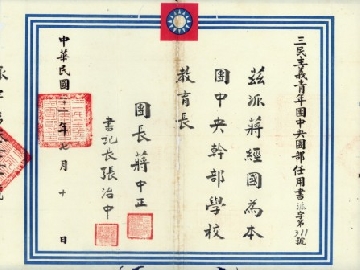 三民主義青年團中央團部任用書
茲派蔣經國為本
團中央幹部學校
教育長
團長蔣中正
書記長張治中
中華民國三十三年 月十 日